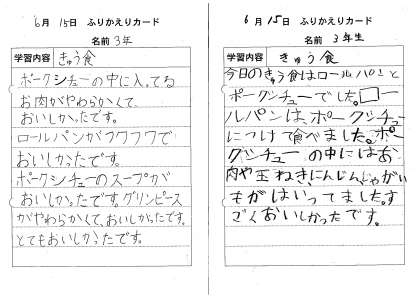 6月 15日 ふりかえりカード
名前 3年
学習内容 きゅう食
ポークシチューの中に入ってる
お肉がやわらかくて、
おいしかったです。
ロールパンがフワフワで
おいしかったです。
ポークシチューのスープが
おいしかったです。グリンピース
がやわらかくて、おいしかったです。
とてもおいしかったです。
6月 15日 ふりかえりカード
名前 3年生
学習内容 きゅう食
今日のきゅう食はロールパンと
ポークシチューでした。ロー
ルパンは、ポークシチュー
につけて食べました。ポー
クシチューの中にはお
肉や玉ねぎ、にんじん、じゃがい
もがはいってました。す
ごくおいしかったです。